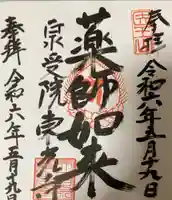 奉拝 令和六年五月十九日
薬師如来
泉受院東光寺
奉拝 令和六年五月九日